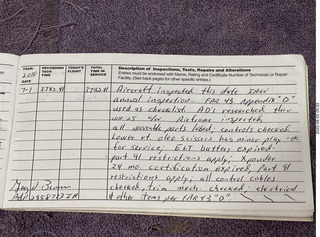 YEAR: 20
DATE
RECORDING TACH TIME
TODAY'S FLIGHT
TOTAL TIME IN SERVICE
Description of Inspections, Tests, Repairs and Alterations
Entries must be endorsed with Name, Rating and Certificate Number of Technician or Repair Facility. (See back pages for other specific entries.)
7-1 Aircraft inspected this date IAW
annual inspection. FAR 43 Appendix "D"
used as checklist. AD's researched thru
Airframe inspected,
all movable parts lubed, controls checked
Lower rt. oleo scissors has minor play - ok
for service; ELT battery expired -
part 91 restrictions apply; Xponder
24 mo. certification expired, Part 91
restrictions apply; all control cables
checked, trim mech. checked, electrical
& other items per FAR 43 "D"